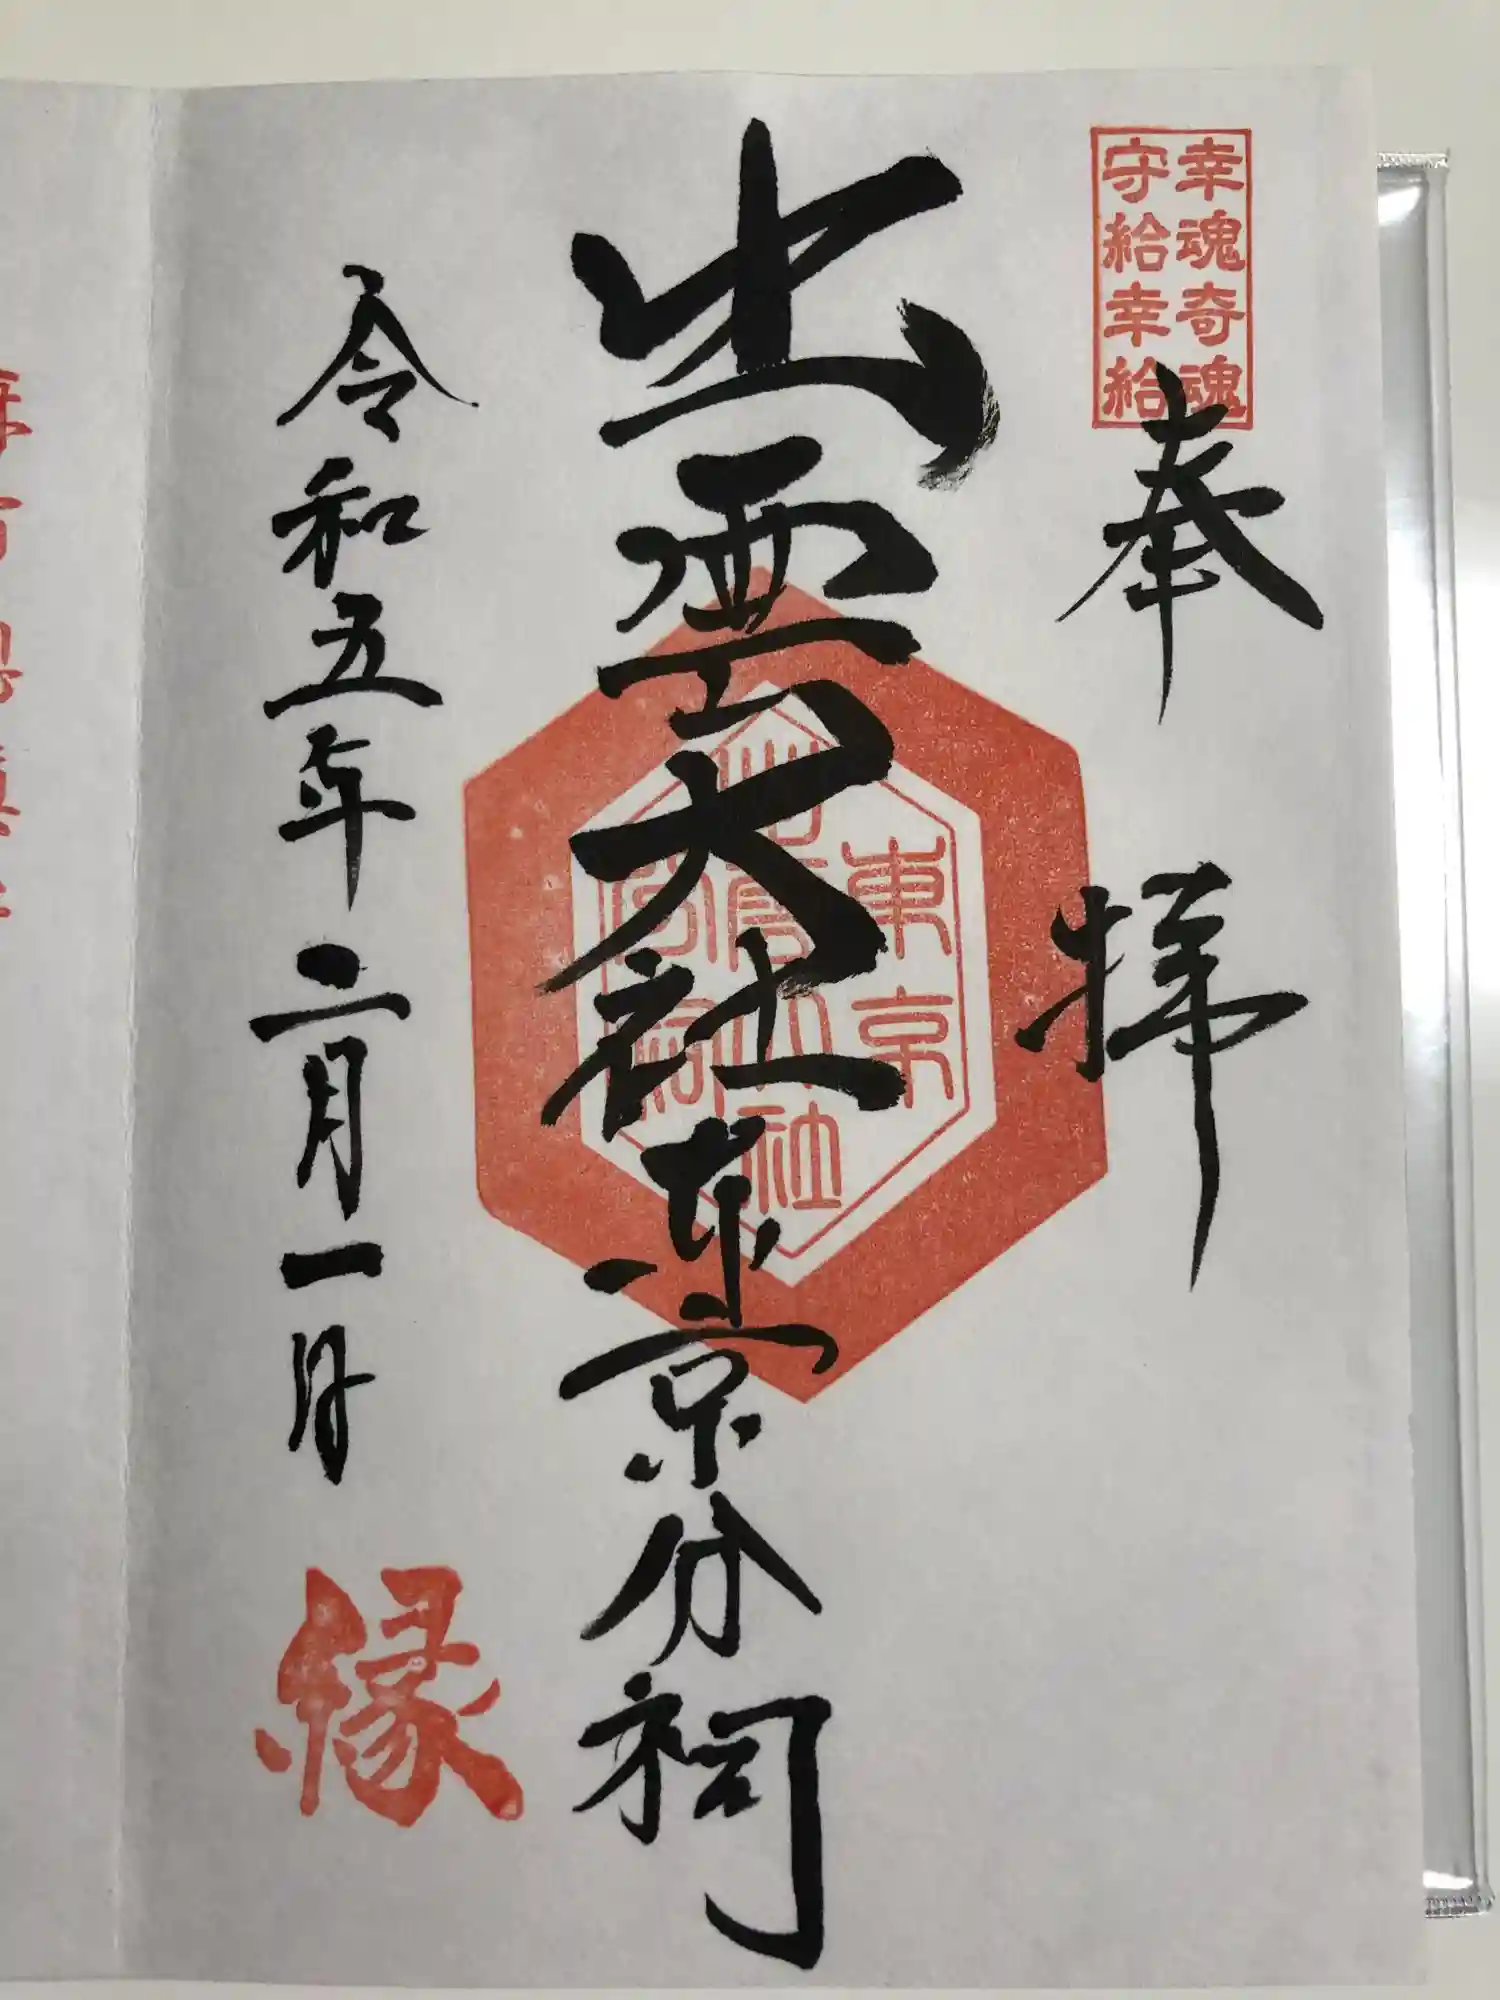 幸魂奇魂
守給幸給
奉拝
出雲大社東京分祠
東京
出雲大社
分祠
令和五年二月一日
縁